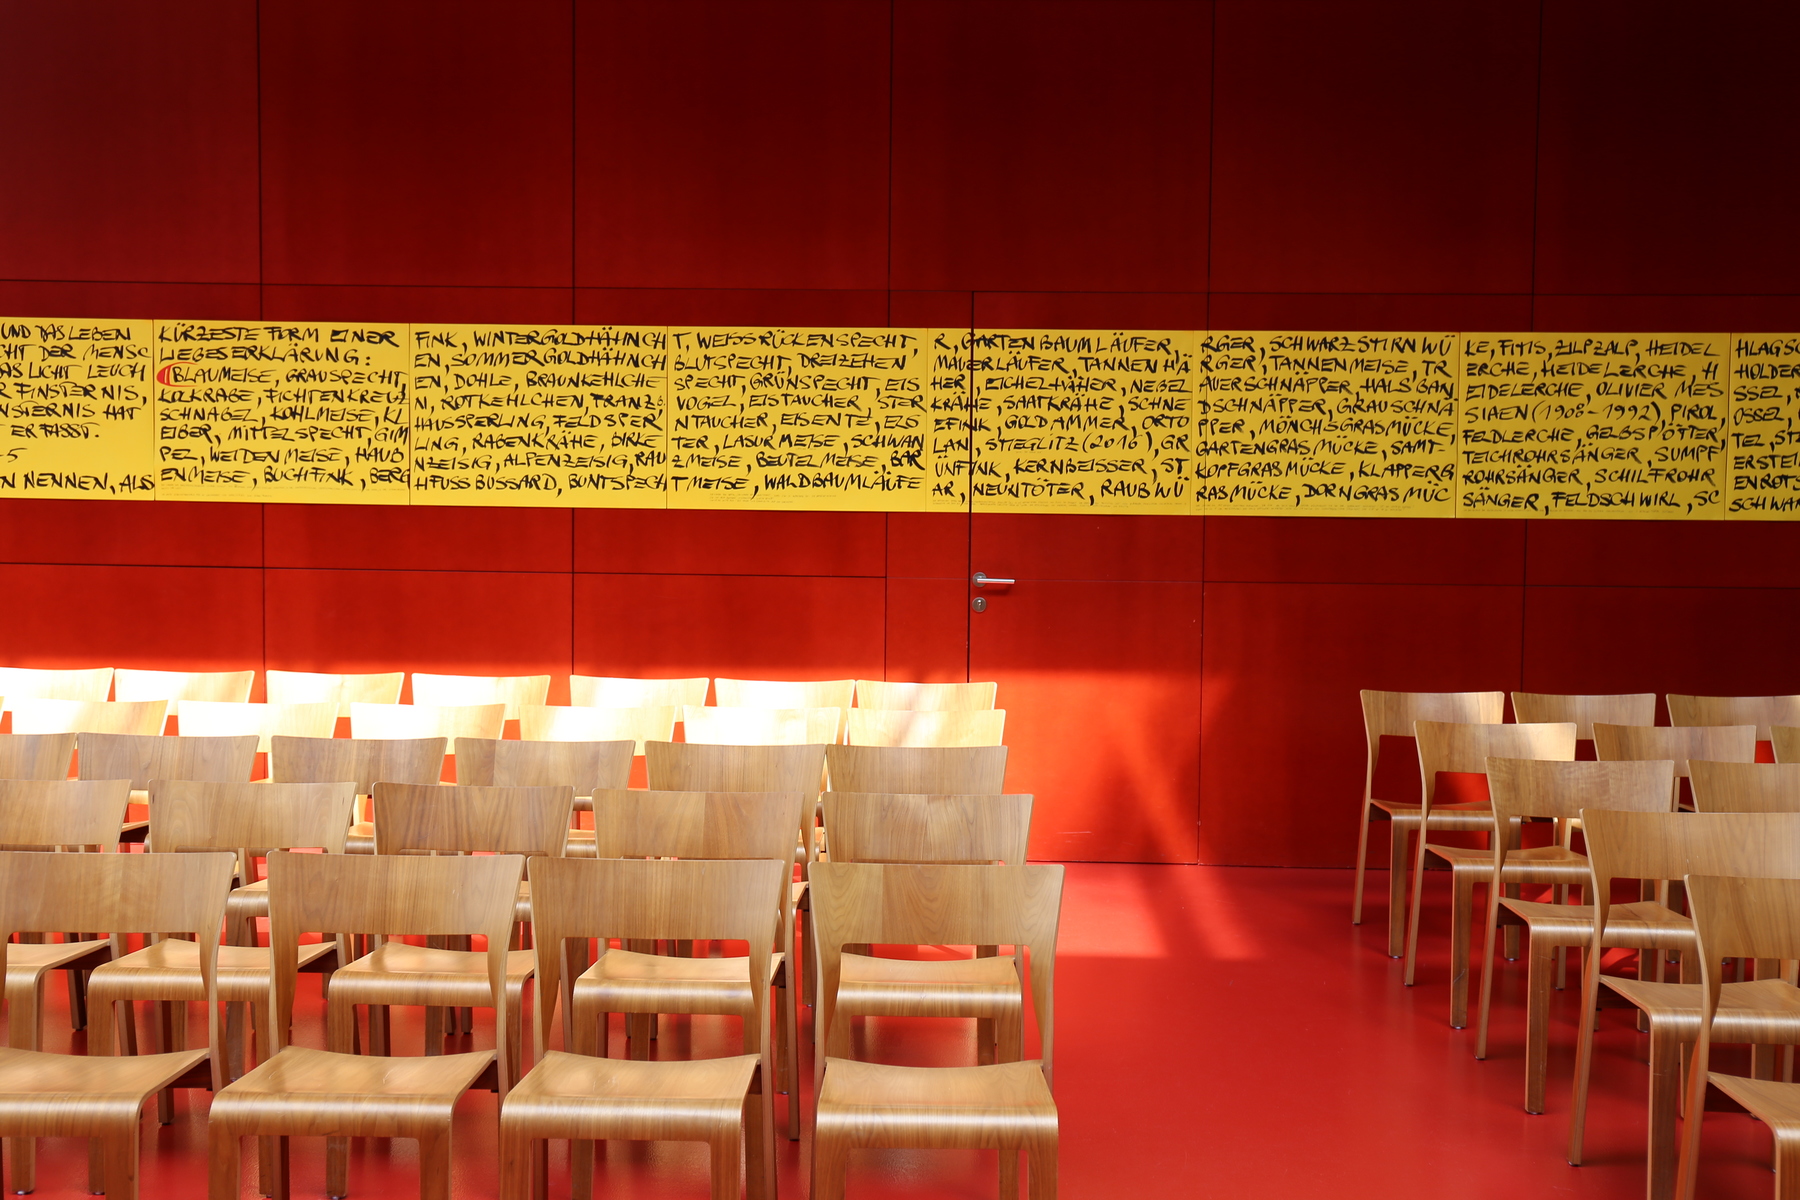 UND DAS LEBEN
CHT DER MENSC
AS LICHT LEUCH
R FINSTERNIS,
NSTERNIS HAT
ERFASST.
-5
N NENNEN, ALS
KÜRZESTE FORM EINER
LIEBESERKLÄRUNG:
BLAUMEISE, GRAUSPECHT,
KOLKRABE, FICHTENKREUZ
SCHNABEL, KOHLMEISE, KL
EIBER, MITTELSPECHT, GIM
PEL, WEIDENMEISE, HAUB
ENMEISE, BUCHFINK, BERG
FINK, WINTERGOLDHÄHNCH
EN, SOMMERGOLDHÄHNCH
EN, DOHLE, BRAUNKEHLCHE
N, ROTKEHLCHEN, FRANZ.
HAUSSPERLING, FELDSPER
LING, RABENKRÄHE, BIRKE
NZEISIG, ALPENZEISIG, RAU
HFUSSBUSSARD, BUNTSPECH
T, WEISSRÜCKENSPECHT,
BLUTSPECHT, DREIZEHEN
SPECHT, GRÜNSPECHT, EIS
VOGEL, EISTAUCHER, STER
NTAUCHER, EISENTE, ELS
TER, LASURMEISE, SCHWAN
ZMEISE, BEUTELMEISE, BAR
TMEISE, WALDBAUMLÄUFE
R, GARTENBAUMLÄUFER,
MAUERLÄUFER, TANNENHÄ
HER, EICHELHÄHER, NEBEL
KRÄHE, SAATKRÄHE, SCHNE
EFINK, GOLDAMMER, ORTO
LAN, STIEGLITZ (2016), GR
ÜNFINK, KERNBEISSER, ST
AR, NEUNTÖTER, RAUBWÜ
RGER, SCHWARZSTIRNWÜ
RGER, TANNENMEISE, TR
AUERSCHNÄPPER, HALSBAN
DSCHNÄPPER, GRAUSCHNÄ
PPER, MÖNCHSGRASMÜCKE,
GARTENGRASMÜCKE, SAMT-
KOPFGRASMÜCKE, KLAPPERG
RASMÜCKE, DORNGRASMÜC
KE, FITIS, ZILPZALP, HEIDEL
ERCHE, HEIDELERCHE, H
EIDELERCHE, OLIVIER MES
SIAEN (1908-1992), PIROL
FEDLERCHE, GELBSPÖTTER,
TEICHROHRSÄNGER, SUMPF
ROHRSÄNGER, SCHILFROHR
SÄNGER, FELDSCHWIRL, SC
HLAGSC
HOLDER
SSEL,
OSSEL,
TEL, ST
ERSTEL
ENROTS
SCHWAR